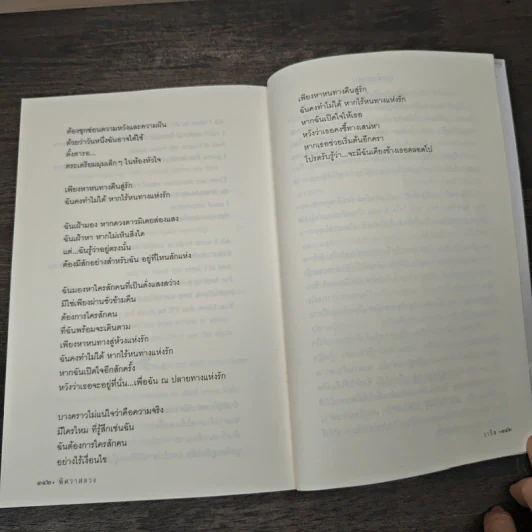 ต้องซุกซ่อนความหวังและความฝัน
ด้วยว่าวันหนึ่งฉันอาจได้ใช้
ตั้งตารอ...
ตระเตรียมมุมเล็ก ๆ ในห้องหัวใจ
เพียงหาหนทางคืนสู่รัก
ฉันคงทำไม่ได้ หากไร้หนทางแห่งรัก
ฉันเฝ้ามอง หากดวงดาวมิเคยส่องแสง
ฉันเฝ้าหา หากไม่เห็นสิ่งใด
แต่...ฉันรู้ว่าอยู่ตรงนั้น
ต้องมีสักอย่างสำหรับฉัน อยู่ที่ไหนสักแห่ง
ฉันมองหาใครสักคนที่เป็นดั่งแสงสว่าง
มิใช่เพียงผ่านชั่วข้ามคืน
ต้องการใครสักคน
ที่ฉันพร้อมจะเดินตาม
เพียงหาหนทางสู่ห้วงแห่งรัก
ฉันคงทำไม่ได้ หากไร้หนทางแห่งรัก
หากฉันเปิดใจอีกสักครั้ง
หวังว่าเธอจะอยู่ที่นั่น...เพื่อฉัน ณ ปลายทางแห่งรัก
บางคราวไม่แน่ใจว่าคือความจริง
มีใครไหม ที่รู้สึกเช่นฉัน
ฉันต้องการใครสักคน
อย่างไร้เงื่อนไข
พิศวาสลวง
เพียงหาหนทางคืนสู่รัก
ฉันคงทำไม่ได้ หากไร้หนทางแห่งรัก
หากฉันเปิดใจให้เธอ
หวังว่าเธอคงชี้ทางเสน่หา
หากเธอช่วยเริ่มต้นอีกครา
โปรดรับรู้ว่า...จะมีฉันเคียงข้างเธอตลอดไป
วาโย